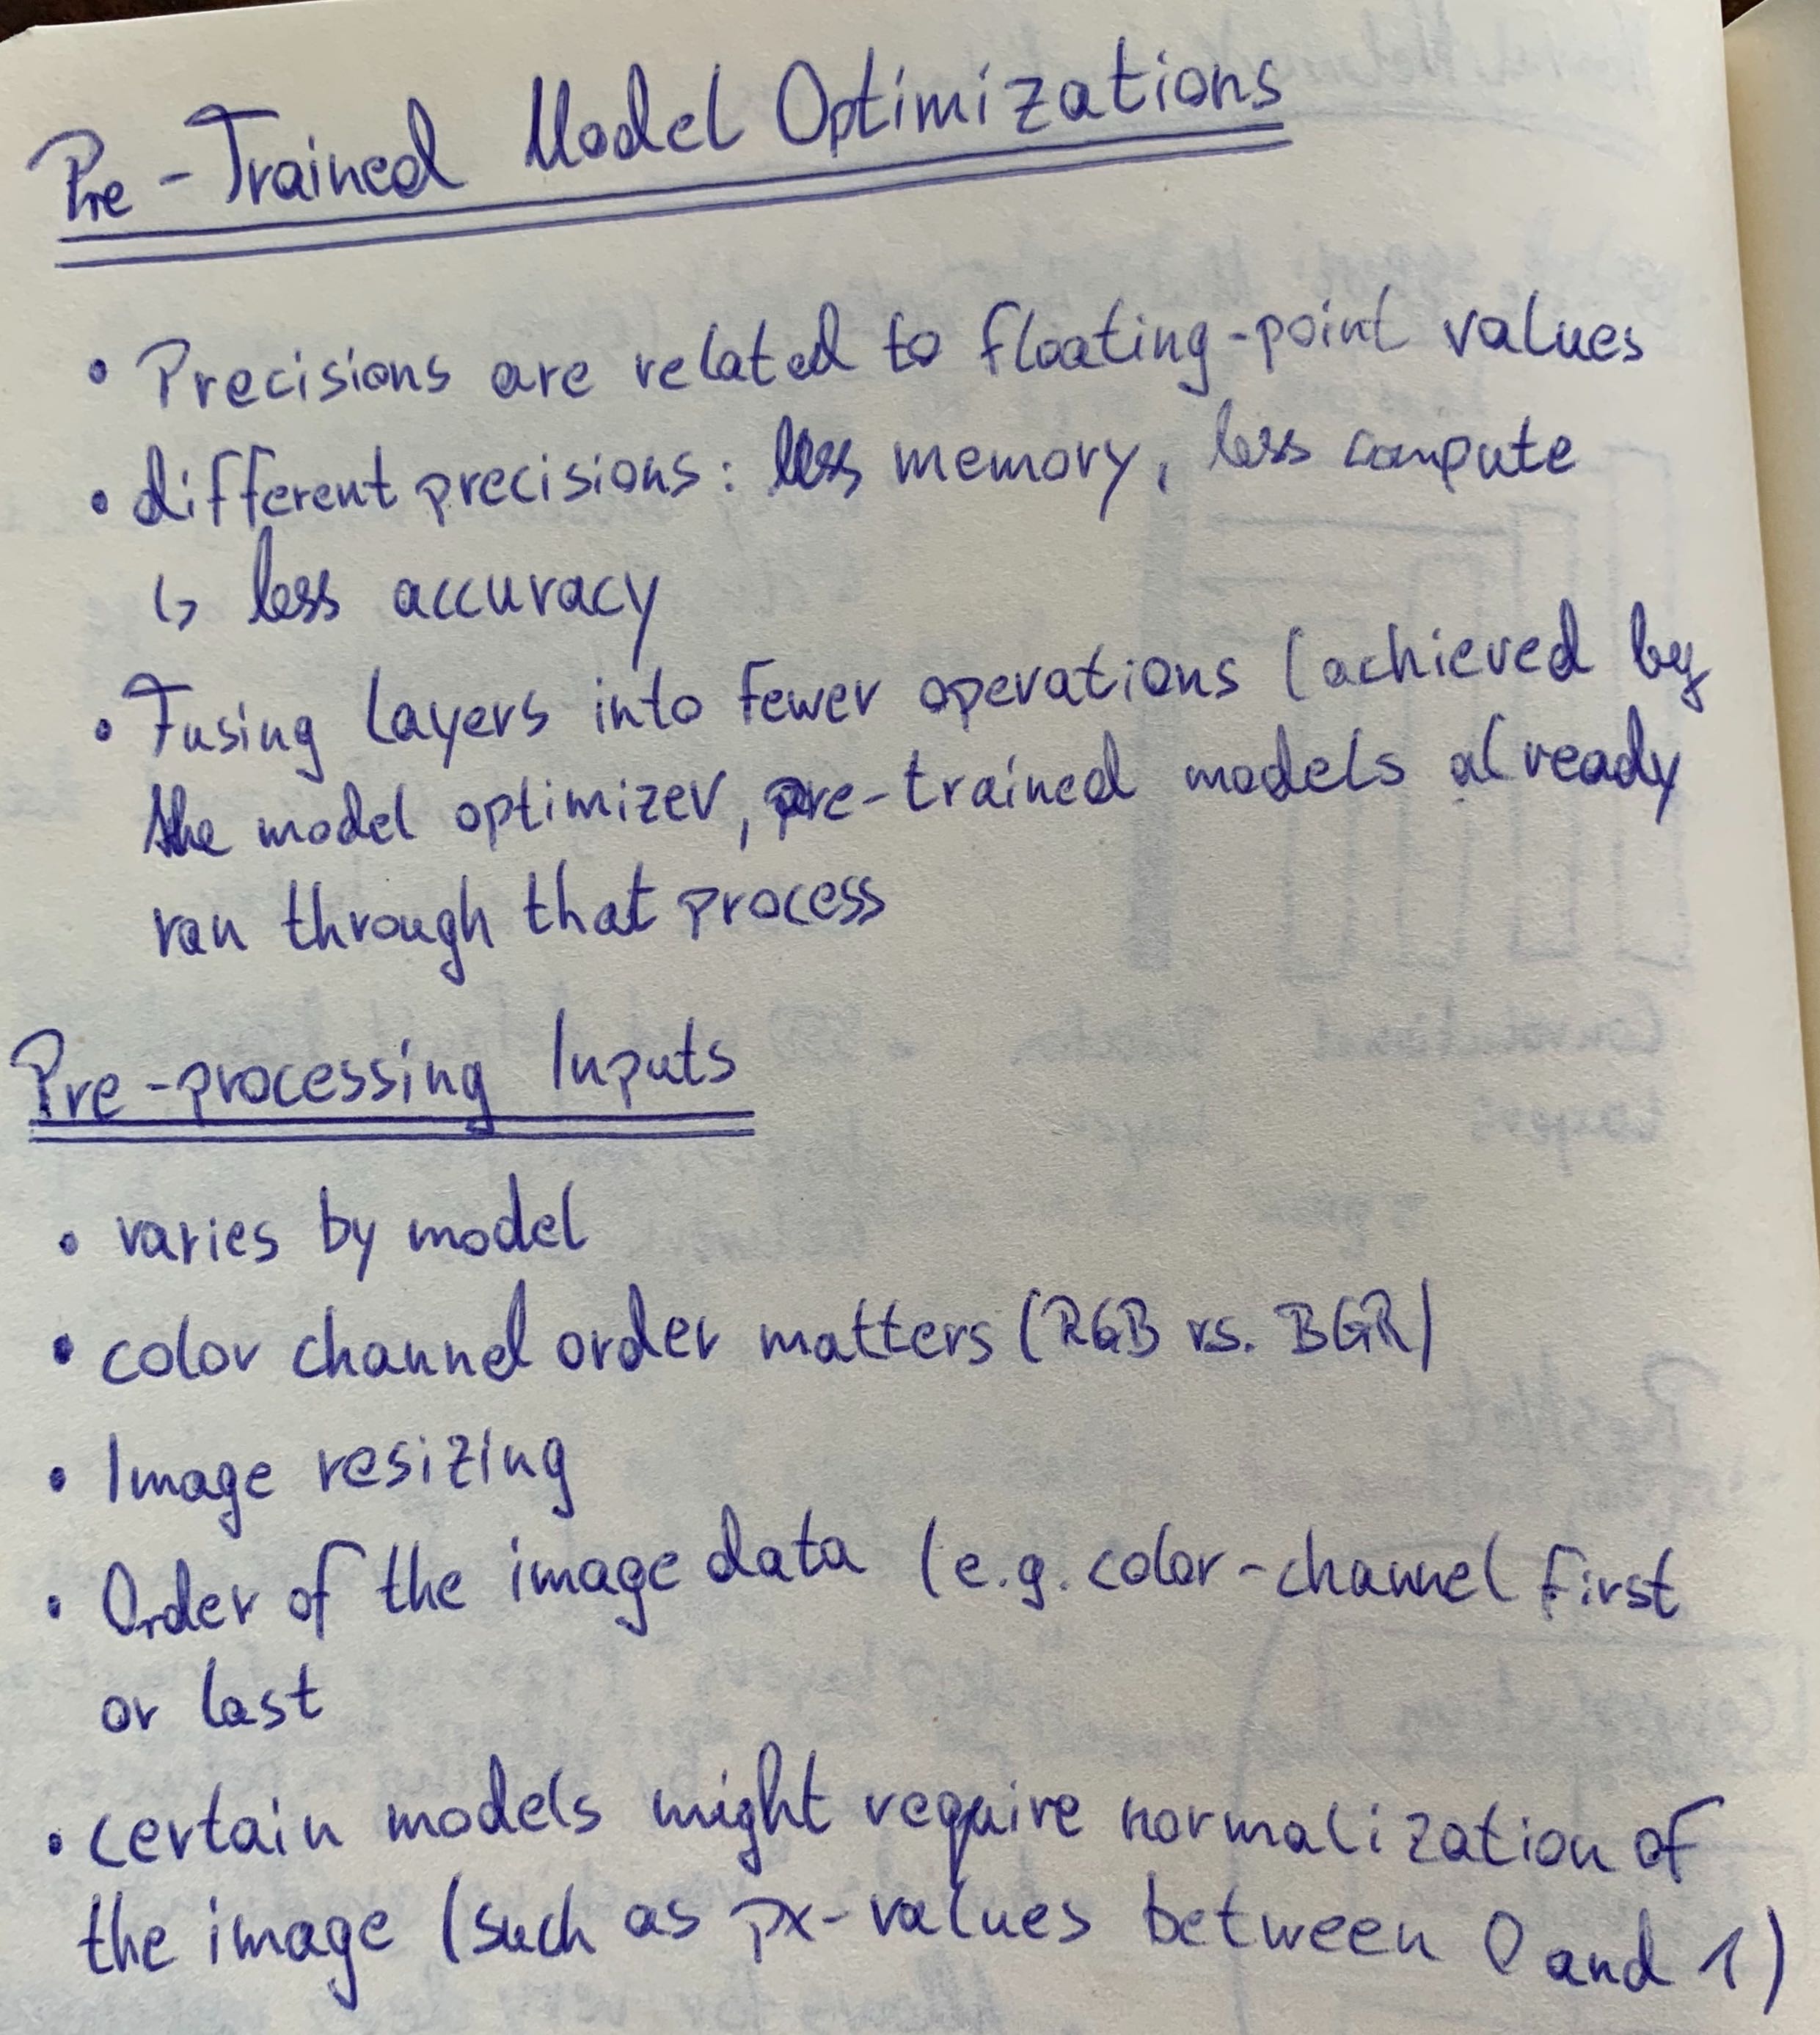 Pre-Trained Model Optimizations
• Precisions are related to floating-point values
• different precisions: less memory, less compute
↳ less accuracy
• Fusing Layers into fewer operations (achieved by
the model optimizer, pre-trained models already
ran through that process
Pre-processing Inputs
• varies by model
• color channel order matters (RGB vs. BGR)
• Image resizing
• Order of the image data (e.g. color-channel first
or last
• certain models might require normalization of
the image (such as px-values between 0 and 1)